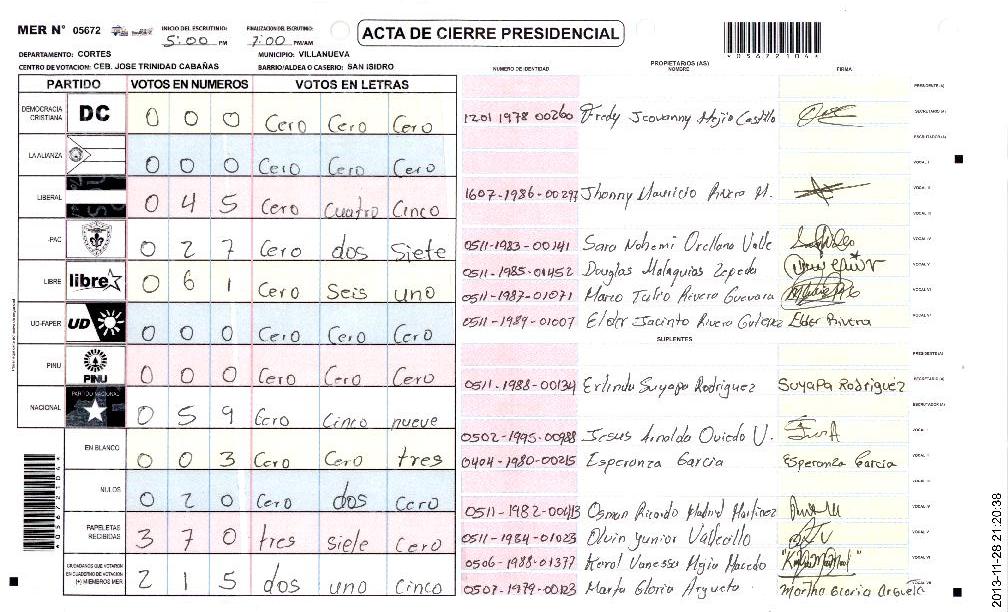 MER N° 05672
INICIO DEL ESCRUTINIO: 5:00 PM
FINALIZACION DEL ESCRUTINIO: 7:00 PM/AM
ACTA DE CIERRE PRESIDENCIAL
*05672104*
DEPARTAMENTO: CORTES
MUNICIPIO: VILLANUEVA
CENTRO DE VOTACION: CEB. JOSE TRINIDAD CABAÑAS
BARRIO/ALDEA O CASERIO: SAN ISIDRO
PARTIDO VOTOS EN NUMEROS VOTOS EN LETRAS
DEMOCRACIA CRISTIANA DC 0 0 0 Cero Cero Cero
LA ALIANZA 0 0 0 Cero Cero Cero
LIBERAL 0 4 5 Cero Cuatro Cinco
PAC 0 2 7 Cero dos Siete
LIBRE libre 0 6 1 Cero Seis uno
UD-FAPER UD 0 0 0 Cero Cero Cero
PINU PINU 0 0 0 Cero Cero Cero
NACIONAL PARTIDO NACIONAL 0 5 9 Cero Cinco nueve
EN BLANCO 0 0 3 Cero Cero tres
NULOS 0 2 0 Cero dos Cero
PAPELETAS RECIBIDAS 3 7 0 tres siete Cero
CIUDADANOS QUE VOTARON EN CUADERNO DE VOTACION (+) MIEMBROS MER 2 1 5 dos uno Cinco
PROPIETARIOS (AS)
NUMERO DE IDENTIDAD NOMBRE FIRMA
PRESIDENTE (A)
1201 1978 00260 Fredy Jeovanny Mejia Castillo SECRETARIO (A)
ESCRUTADOR (A)
VOCAL I
1607-1986-00297 Jhonny Mauricio Rivera M. VOCAL II
VOCAL III
0511-1983-00141 Sara Nohemi Orellana Valle VOCAL IV
0511-1985-01452 Douglas Malaquias Zepeda VOCAL V
0511-1987-01071 Marco Tulio Rivera Guevara VOCAL VI
0511-1989-01007 Elder Jacinto Rivera Elder Rivera
SUPLENTES
PRESIDENTE (A)
0511-1988-00134 Erlinda Suyapa Rodriguez Suyapa Rodriguez SECRETARIO (A)
ESCRUTADOR (A)
0502-1995-00988 Jesus Arnaldo Oviedo V. VOCAL I
0404-1980-00215 Esperanza Garcia Esperanza Garcia VOCAL II
0511-1982-00413 Osman Ricardo Madrid Martinez VOCAL IV
0511-1984-01023 Olvin Yunior Vallecillo VOCAL V
0506-1988-01377 Kerol Vanessa Mejia Macedo VOCAL VI
0507-1979-00123 Marta Gloria Argueta Martha Gloria Argueta VOCAL VII
2013-11-28 21:20:38